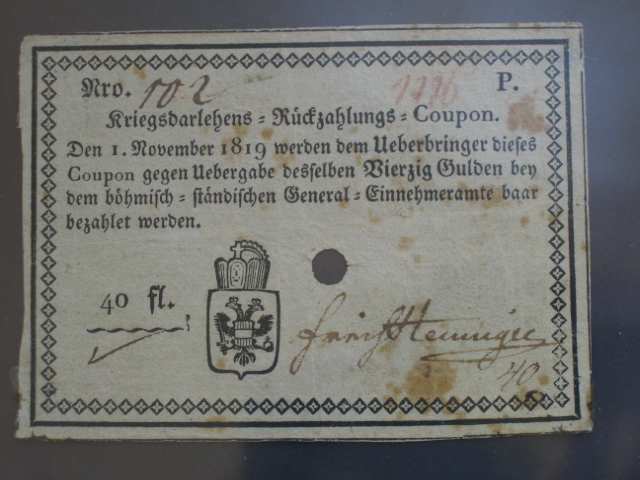 Nro. 102 1116 P.
Kriegsdarlehens = Rückzahlungs = Coupon.
Den 1. November 1819 werden dem Ueberbringer dieses
Coupon gegen Uebergabe desselben Vierzig Gulden bey
dem böhmisch = ständischen General = Einnehmeramte baar
bezahlet werden.
40 fl.
40